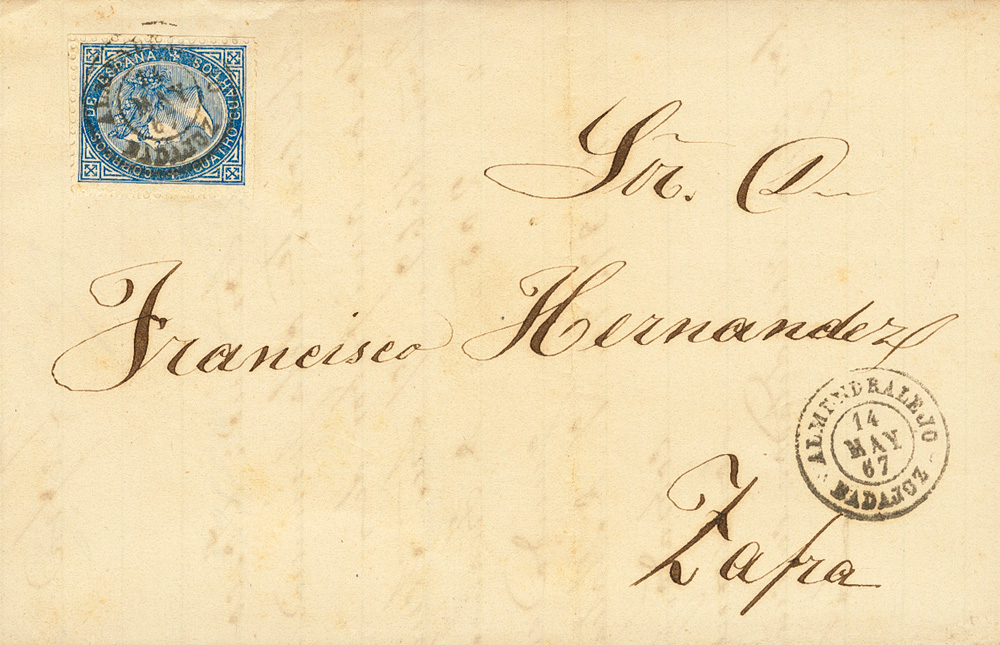 CORREOS DE ESPAÑA CUATRO CUARTOS
14
MAY
67
BADAJOZ
Sõr. Dn
Francisco Hernandez
ALMENDRALEJO
14
MAY
67
BADAJOZ
Zafra